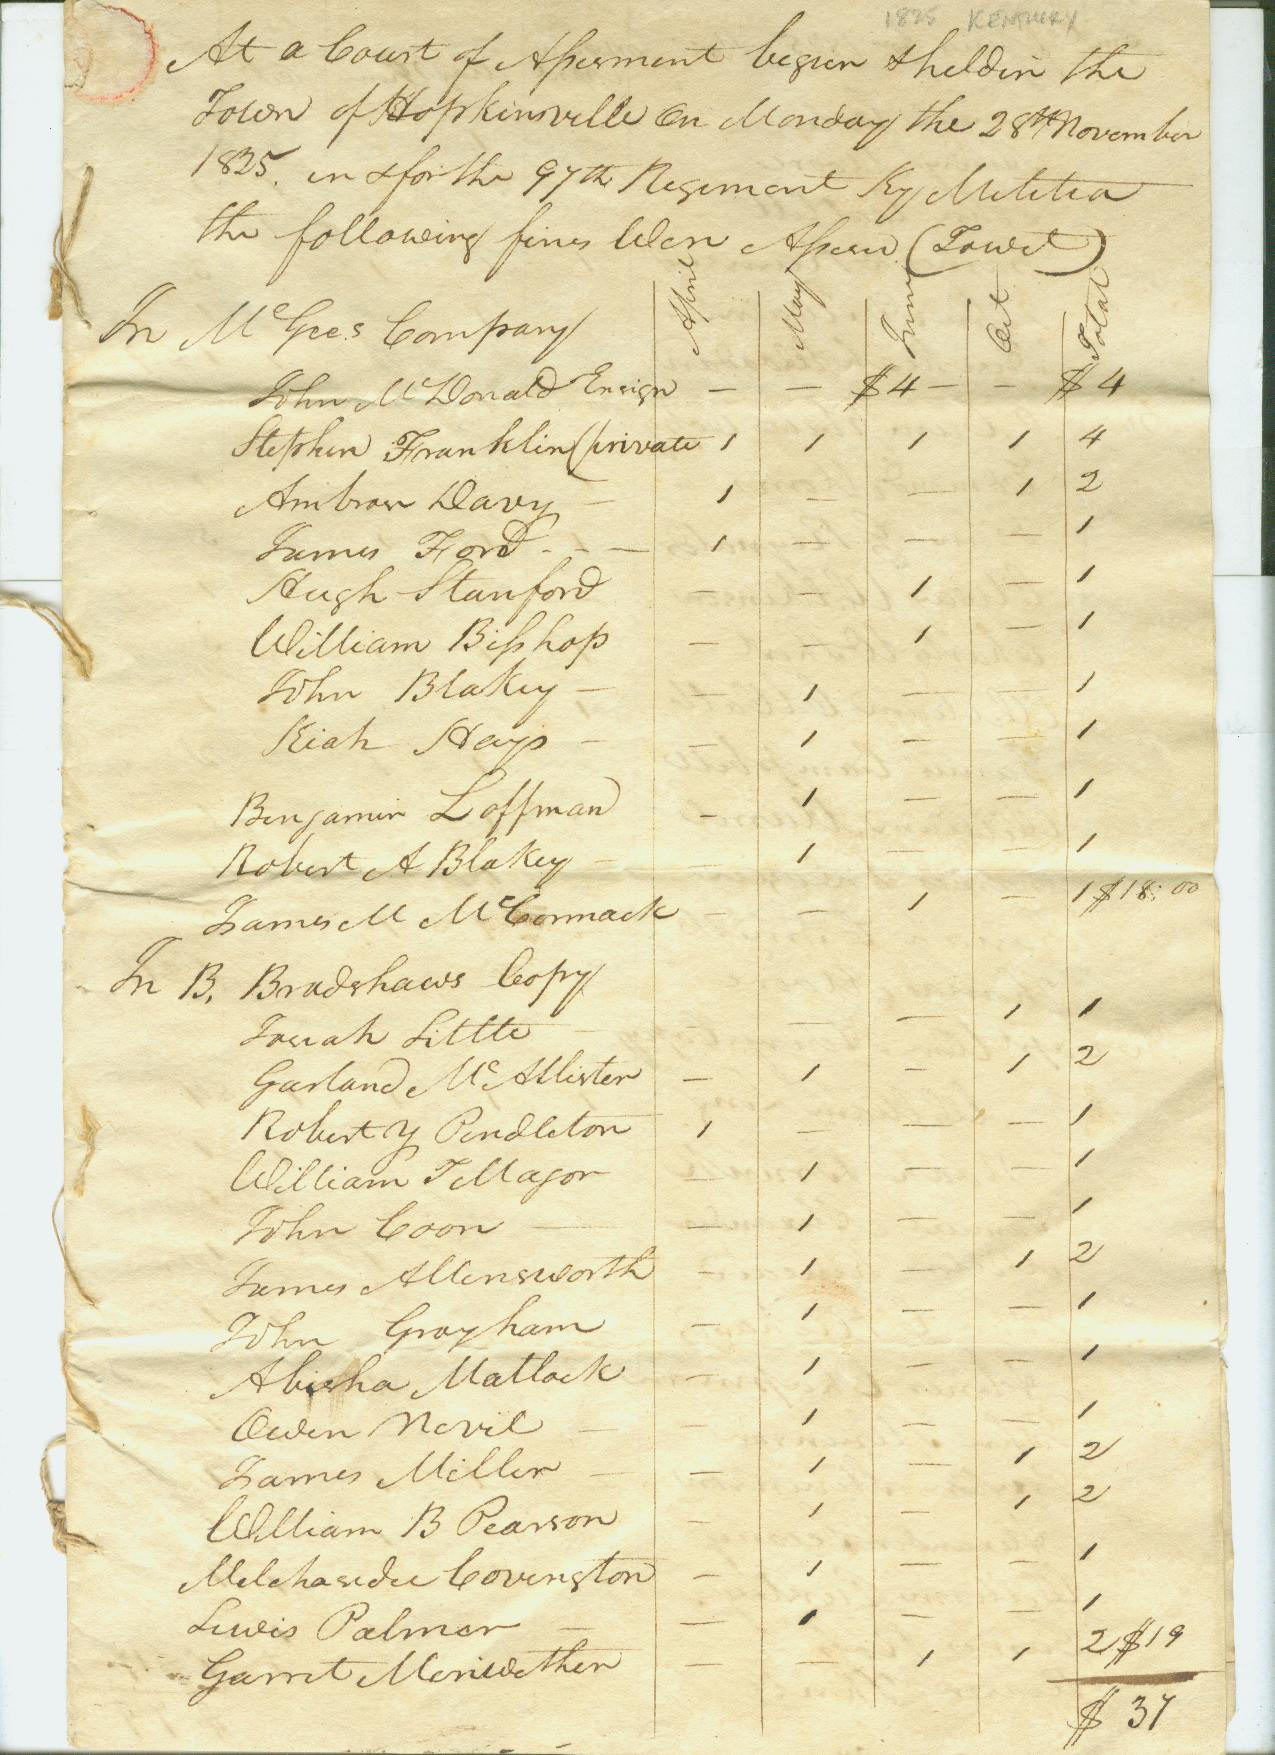 1825 KENTUCKY
At a Court of Assesment begun & held in the
Town of Hopkinsville On Monday the 28th November
1825. in & for the 97th Regiment Ky Militia
the following fines Were Assesed (Towit)
In McGees Company April May June Oct Total
John McDonald Ensign — — $4 — — $4
Stephen Franklin (private 1 1 1 1 4
Ambrose Davy — 1 — — 1 2
James Ford - - — 1 — — — 1
Hugh Stanford — — 1 — 1
William Bisshop — — 1 — 1
John Blakey — — 1 — — 1
Kiah Hays — — 1 — — 1
Benjamin Loffman — 1 — — 1
Robert A Blakey — — 1 — — 1
James M McCormack — — 1 — 1 $18.00
In B. Bradshaws Copy
Josiah Little — — — 1 1
Garland McAllister — 1 — 1 2
Robert Y Pendleton 1 — — — 1
William T Major — 1 — — 1
John Coon — — 1 — — 1
James Allensworth — 1 — 1 2
John Grayham — 1 — — 1
Abisha Matlock — 1 — — 1
Owen Nevil — 1 — — 1
James Miller — — 1 — 1 2
William B Pearson — 1 — 1 2
Melchasedec Covington — 1 — — 1
Lewis Palmer — — 1 — — 1
Garret Meriwether — — 1 1 2 $19
$37